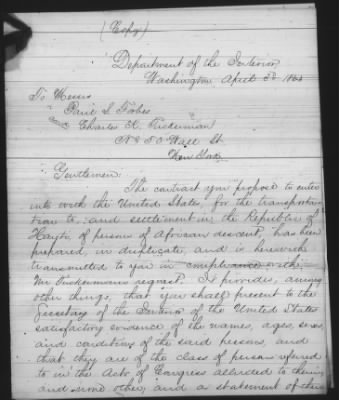 (Copy)
Department of the Interior
Washington April 3d 1863
To Messrs
Paul S. Forbes
and Charles K. Tuckerman
No 50 Wall St
New York
Gentlemen.
The contract you propose to enter
into with the United States, for the transporta
tion to, and settlement in, the Republic of
Hayti of persons of African descent, has been
prepared, in duplicate, and is herewith
transmitted to you in compliance with
Mr Tuckermans request. It provides, among
other things, that you shall present to the
Secretary of the Interior of the United States
satisfactory evidence of the names, ages, sexes,
and conditions of the said persons, and
that they are of the class of persons referred
to in the Acts of Congress alluded to therein
and none other, and a statement of their